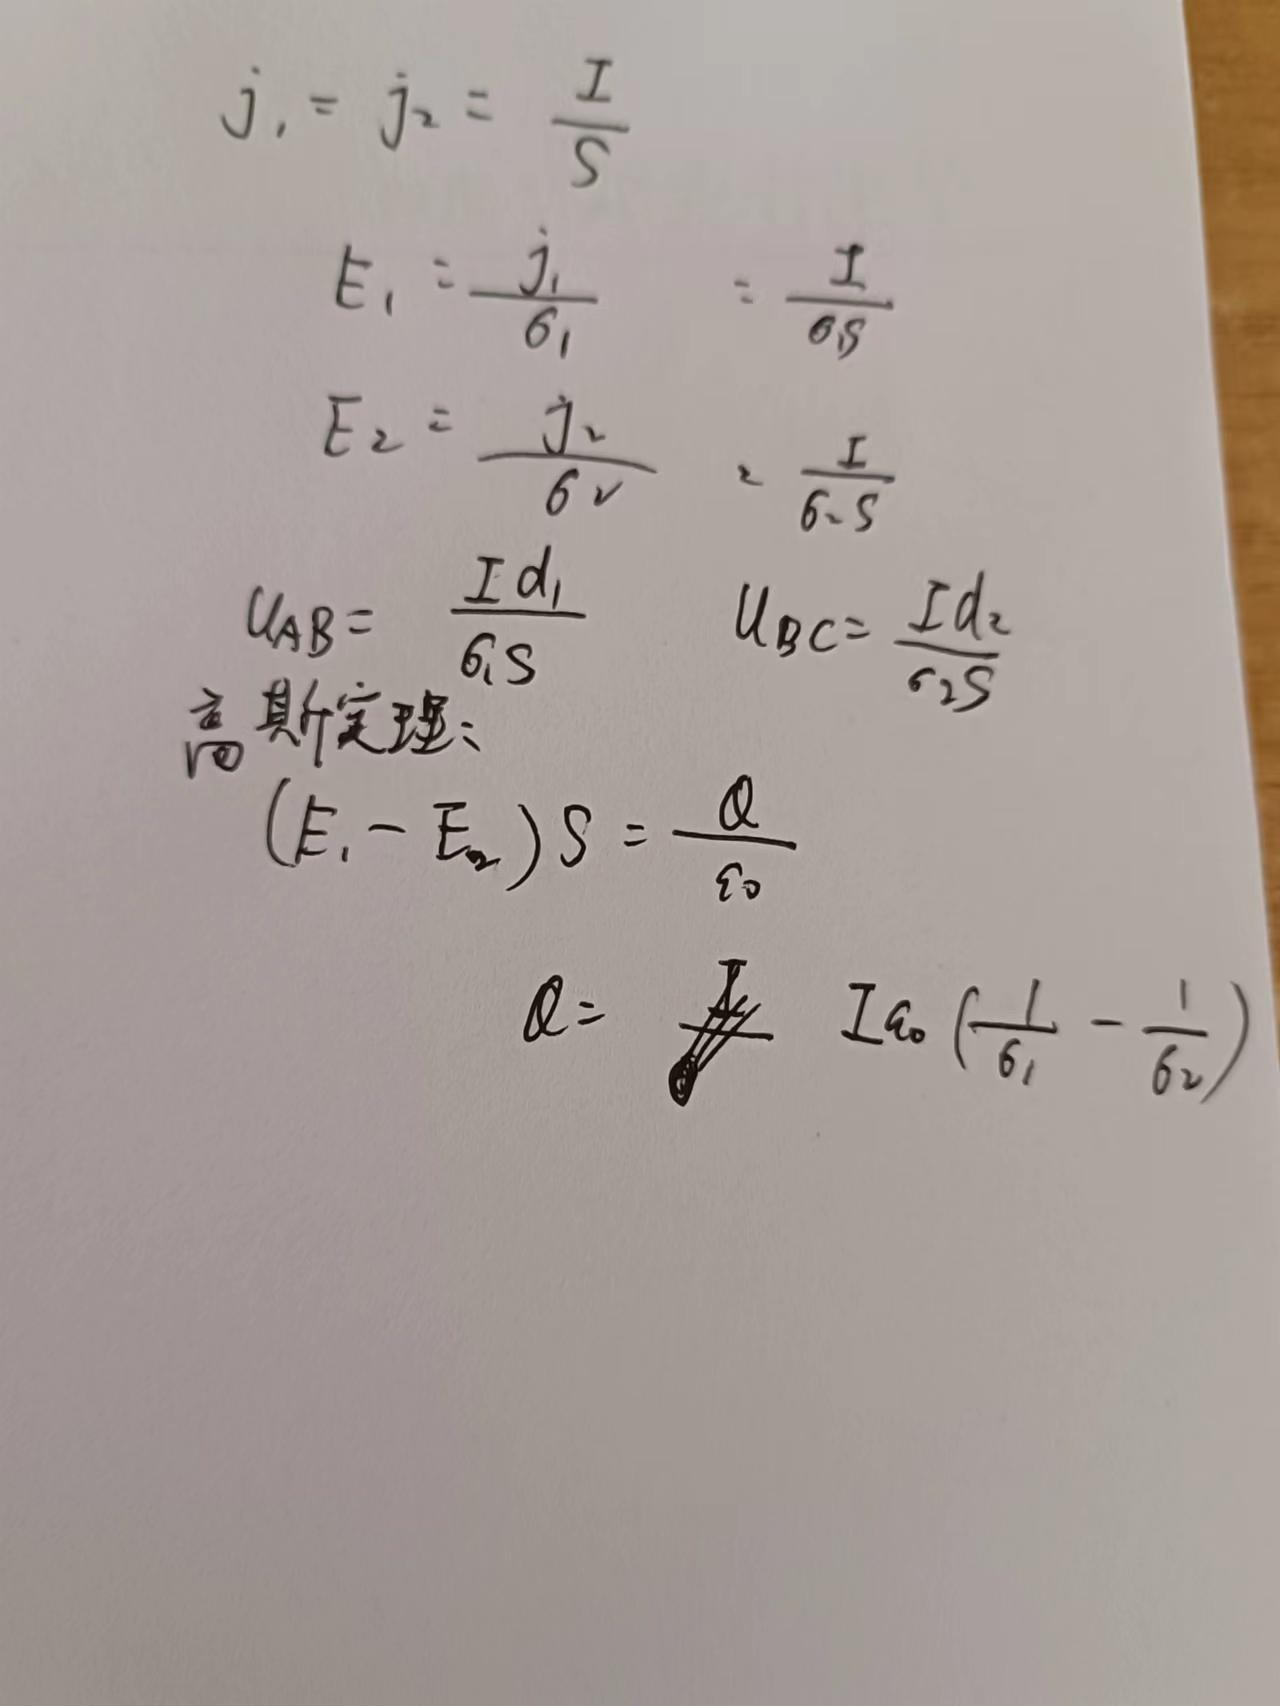 j₁ = j₂ = I/S
E₁ = j₁/σ₁ = I/σ₁S
E₂ = j₂/σ₂ = I/σ₂S
U_AB = Id₁/σ₁S U_BC = Id₂/σ₂S
高斯定理:
(E₁ - E₂)S = Q/ε₀
Q = Iε₀(1/σ₁ - 1/σ₂)